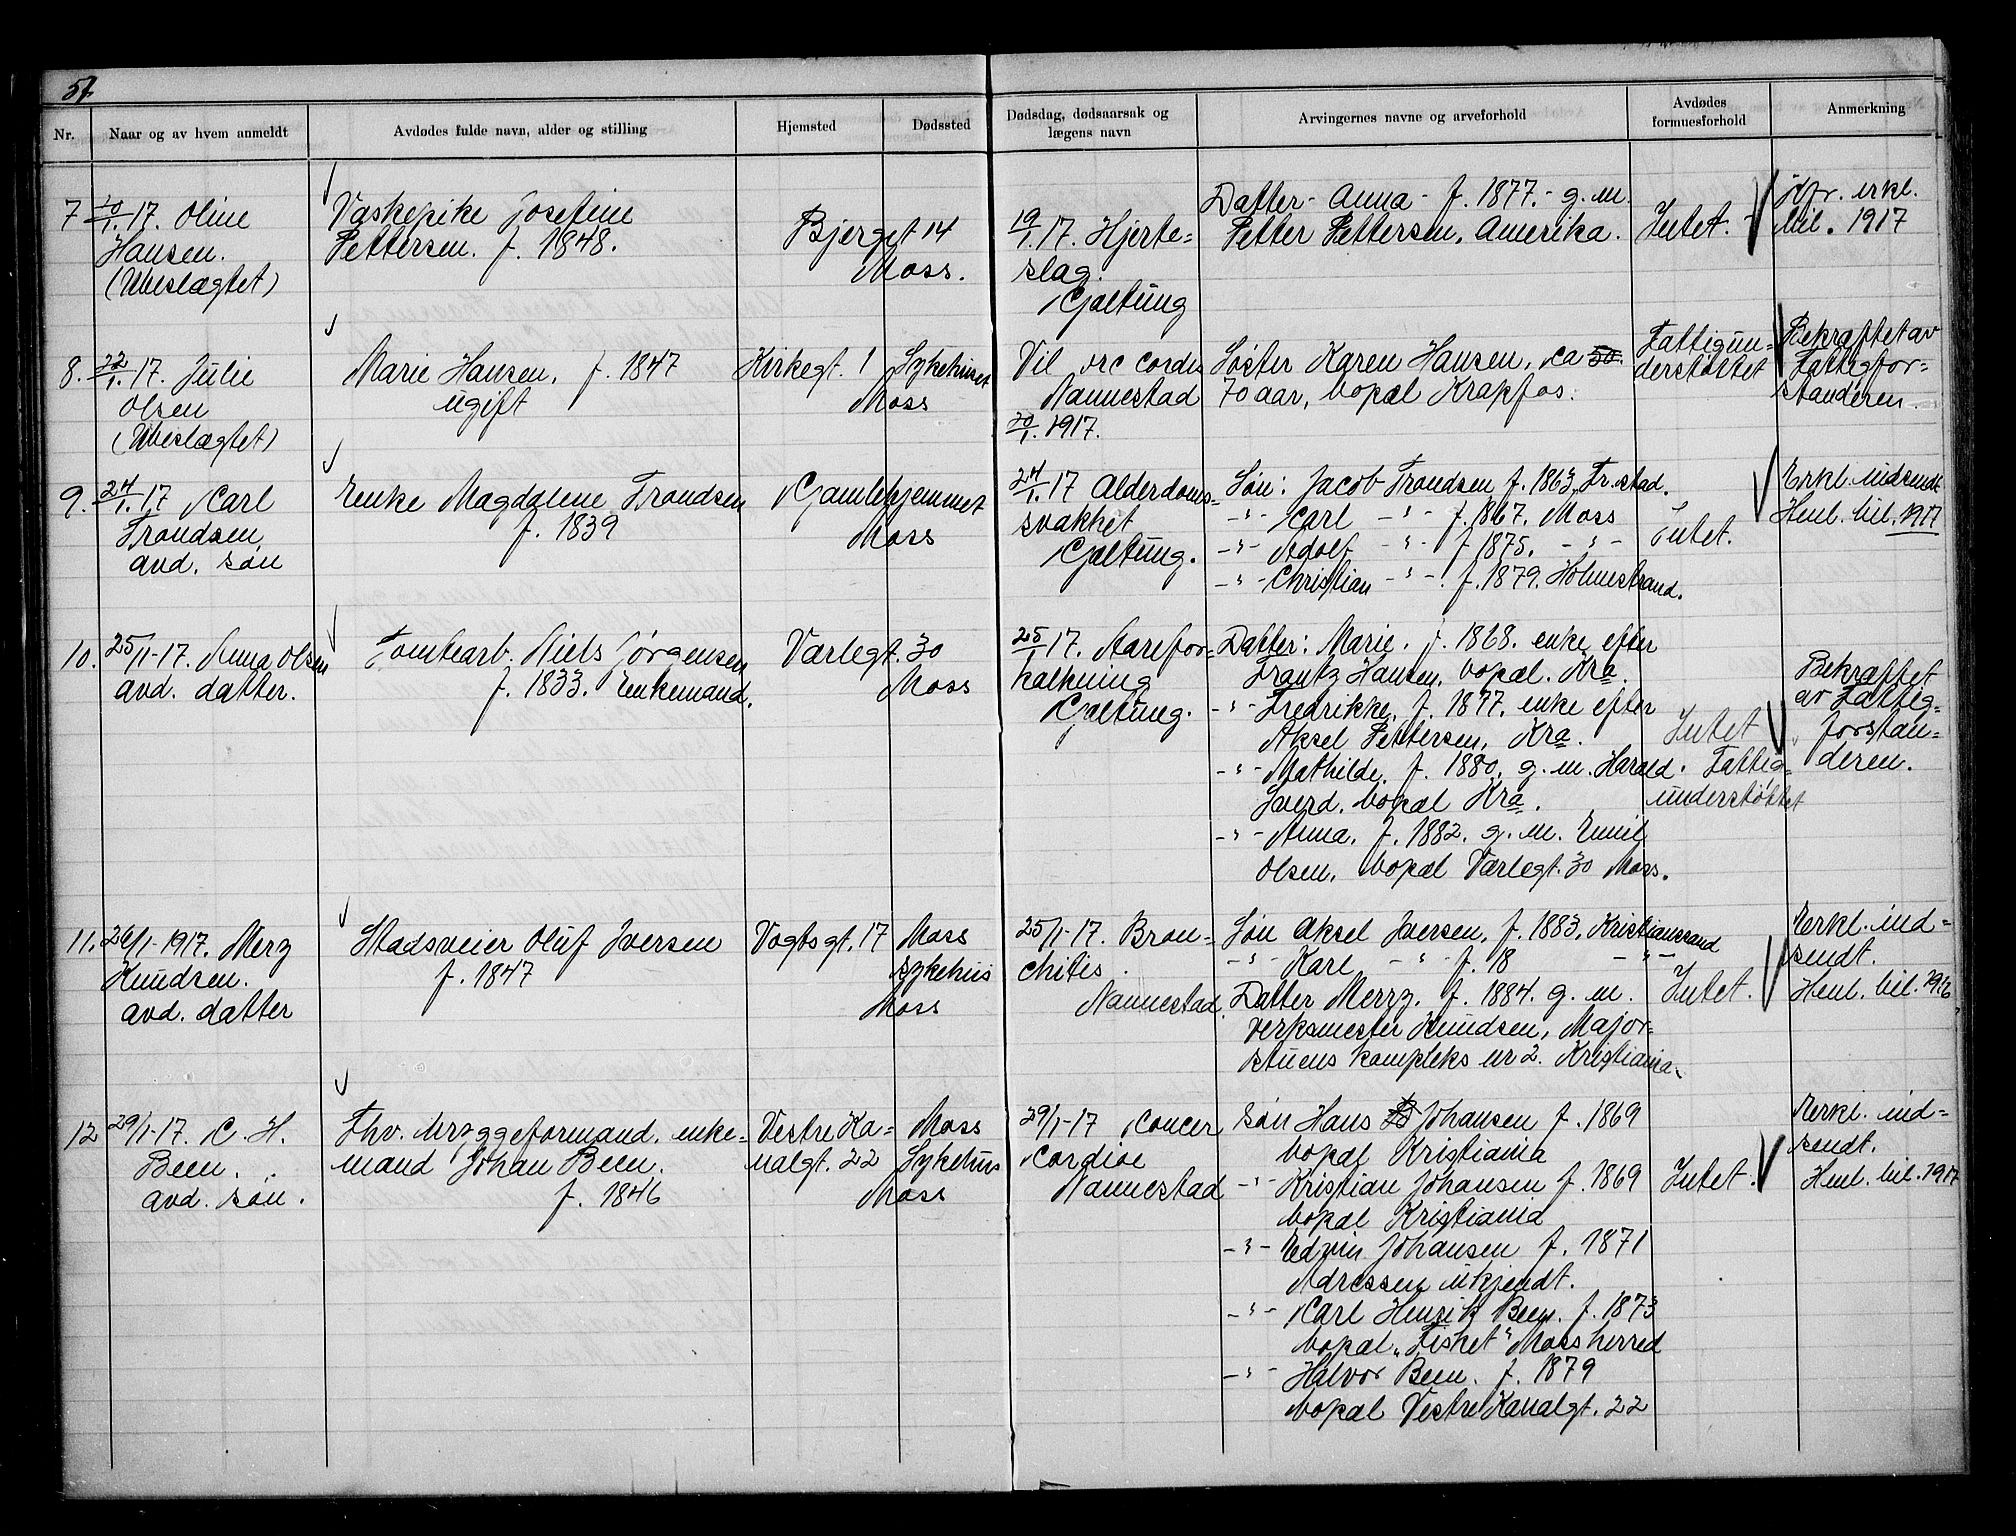 57.
Nr.
Naar og av hvem anmeldt
Avdødes fulde navn, alder og stilling
Hjemsted
Dødssted
Dødsdag, dødsaarsak og
lægens navn
Arvingernes navne og arveforhold
Avdødes
formuesforhold
Anmerkning
7 20/1.17. Oline
Hansen.
(Ubeslægtet)
Vaskepike Josefine
Pettersen. f. 1848.
Bjerget 14
Moss.
19/1.17. Hjerte=
slag.
Galtung
Datter - Anna - f. 1877. - g. m.
Petter Pettersen, Amerika.
Intet.
Jfr. erkl.
bil. 1917
8. 22/1.17. Julie
Olsen
(Ubeslægtet)
Marie Hansen, f. 1847
ugift
Kirkegt. 1
Sykehuset
Moss
Vil orc cordis
Nannestad
20/1. 1917.
Søster Karen Hansen, ca 50
70 aar, bopæl Krapfos.
Fattigun=
derstøttet
Bekræftet av
Fattigfor=
standeren.
9. 24/1.17 Carl
Trondsen
avd. søn
Enke Magdalene Trondsen
f. 1839
Gamlehjemmet
Moss
24/1.17 Alderdoms=
svakhet
Galtung.
Søn: Jacob Trondsen f. 1863, Fr.stad.
-"- Carl -"- f. 1867. Moss
-"- Adolf -"- f 1875. -"-
-"- Christian -"- f. 1879. Holmestrand.
Intet.
Erkl. indsendt
Henl. bil. 1917
10. 25/1-17. Anna Olsen
avd. datter.
Tomtearb. Niels Jørgensen
f. 1833. Enkemand.
Værlegt. 30
Moss
25/1 17. Aarefor=
kalkning
Galtung.
Datter: Marie. f. 1868. enke efter
Frantz Hansen, bopæl. Kra.
-"- Fredrikke, f. 1877. enke efter
Aksel Pettersen, Kra.
-"- Mathilde. f. 1880. g. m. Harald
Sverd. bopæl Kra.
-"- Anna. f. 1882. g. m. Emil
Olsen, bopæl Værlegt. 30 Moss.
Intet
Fattig=
understøttet
Bekræftet
av Fattig=
forstan=
deren.
11. 26/1-1917. Merz
Knudsen.
avd. datter
Stadsveier Oluf Iversen
f. 1847
Vogtsgt. 17
Moss
sykehus
Moss
25/1-17. Bron=
chitis.
Nannestad.
Søn Aksel Iversen, f. 1883, Kristianssand
-"- Karl -"- f. 18 -"-
Datter Merrz. f. 1884. g. m.
verksmester Knudsen, Major=
stuens kompleks nr 2. Kristiania.
Intet.
Erkl. ind=
sendt.
Henl. bil. 1916
12 29/1-17. C. H.
Been.
avd. søn.
Fhv. bryggeformand, enke=
mand Johan Been.
f. 1846
Vestre Ka=
nalgt. 22
Moss
Sykehus
Moss
29/1-17 Concer
cordioe
Nannestad
Søn Hans Johansen f. 1869
bopæl Kristiania
-"- Kristian Johansen f. 1869
bopæl Kristiania
-"- Edvin Johansen f. 1871
Adressen ukjendt.
-"- Carl Henrik Been. f. 1873
bopæl „Fisket" Moss herred
-"- Halvor Been. f. 1879
bopæl Vestre Kanalgt. 22
Intet.
Erkl. ind=
sendt.
Henl. bil. 1917